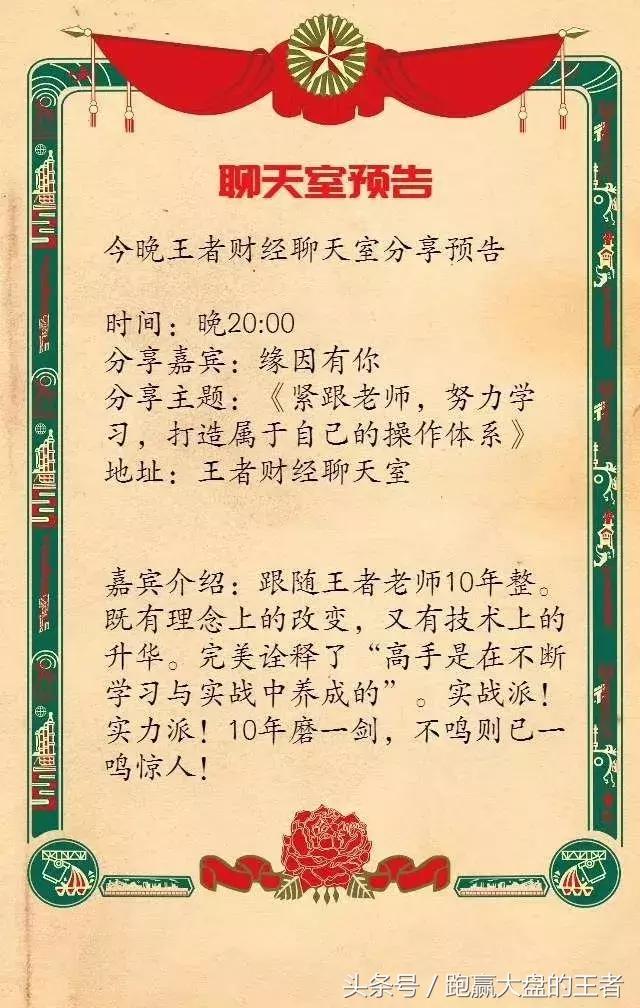 聊天室预告
今晚王者财经聊天室分享预告
时间：晚20:00
分享嘉宾：缘因有你
分享主题：《紧跟老师，努力学
习，打造属于自己的操作体系》
地址：王者财经聊天室
嘉宾介绍：跟随王者老师10年整。
既有理念上的改变，又有技术上的
升华。完美诠释了“高手是在不断
学习与实战中养成的”。实战派！
实力派！10年磨一剑，不鸣则已一
鸣惊人！
头条号 / 跑赢大盘的王者